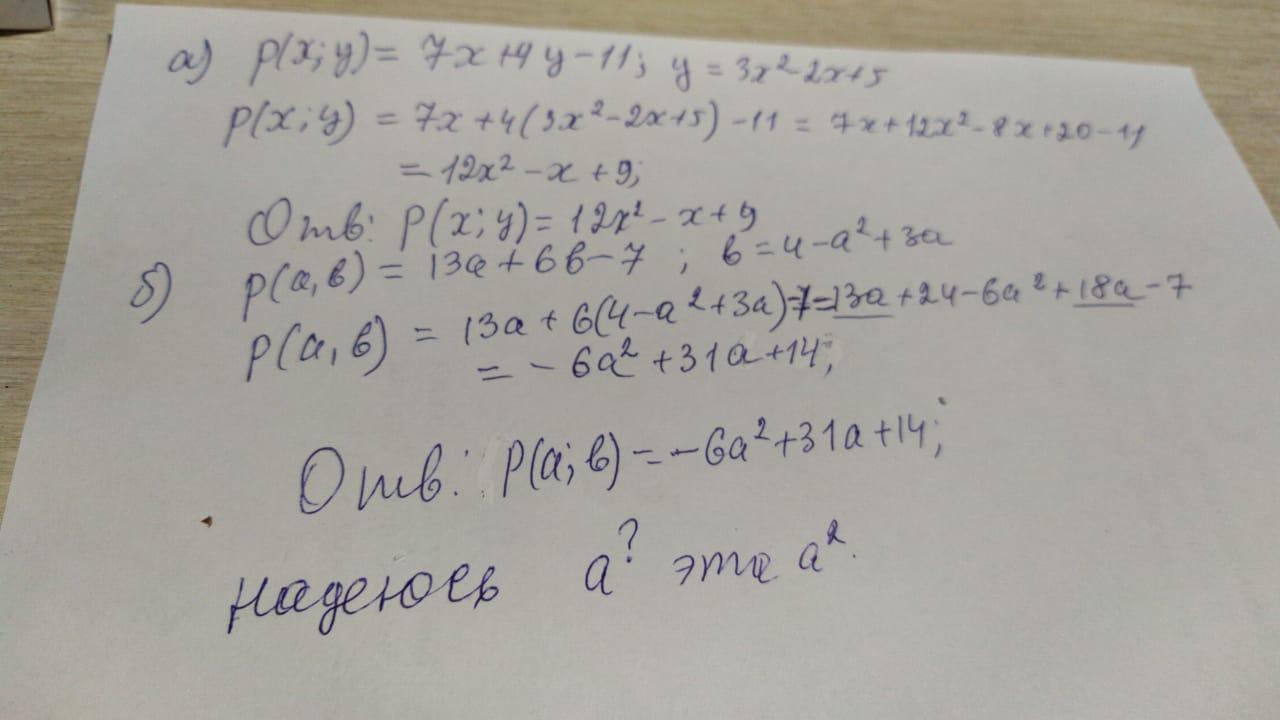 а) p(x;y) = 7x+4y-11; y = 3x²-2x+5
p(x;y) = 7x+4(3x²-2x+5)-11 = 7x+12x²-8x+20-11
= 12x²-x+9;
Отв: P(x;y) = 12x²-x+9
б) p(a,b) = 13a+6b-7; b=4-a²+3a
p(a,b) = 13a+6(4-a²+3a)-7=13a+24-6a²+18a-7
= -6a²+31a+14;
Отв: P(a;b) = -6a²+31a+14;
надеюсь a? это a².